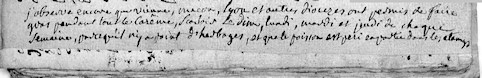 j'observe encore qu'autun, macon, lyon et autres diocezes ont permis de faire
gras pendant tout le Careme, sçavoir le dim, lundi, mardi et jeudi de chaque
semaine, parcequ'il n'y a point d'herbages, et que le poisson est peri en partie dans les etangs